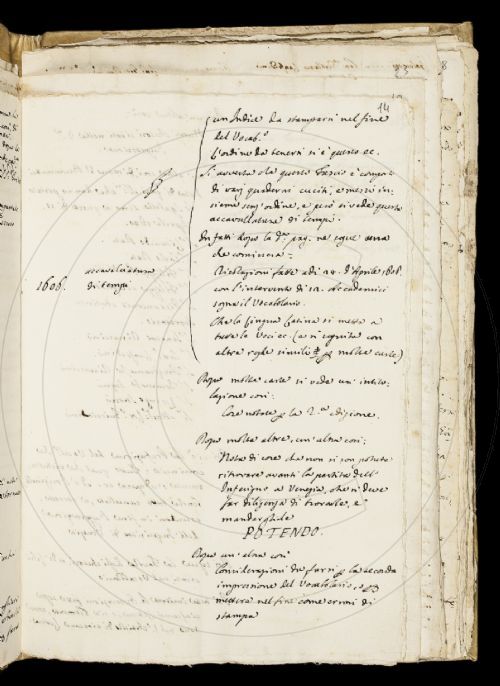 14
un Indice da stamparsi nel fine
del Vocab.º
L'ordine da tenersi si è questo ec.
Si avverta che questo Fascio è compos.
di varj quaderni cuciti, e messi in-
sieme senz'ordine, e però si vede questa
accavallatura di tempi.
Infatti dopo la d.ª pag. ne segue una
che comincia:
1606. accavallatura
di tempi
Risoluzioni fatte a di 14. d'Aprile 1606.
con l'intervento di 12. Accademici
sopra il Vocabolario.
Che la lingua Latina si metta a
tutte le voci ec. (e si seguita con
altre regole simili p molte carte)
Dopo molte carte si vede un' intito-
lazione così:
Cose notate p la 2.ª edizione.
Dopo molte altre, un'altra così:
Nota di cose che non si son potute
ritrovare avanti la partita dell'
Inferigno a Venezia, che si deve
far diligenza di trovarle, e
mandargliele
POTENDO.
Dopo un'altra così
Considerazioni da farsi p la seconda
impressione del Vocabolario, e
mettere nel fine come errori di
stampa